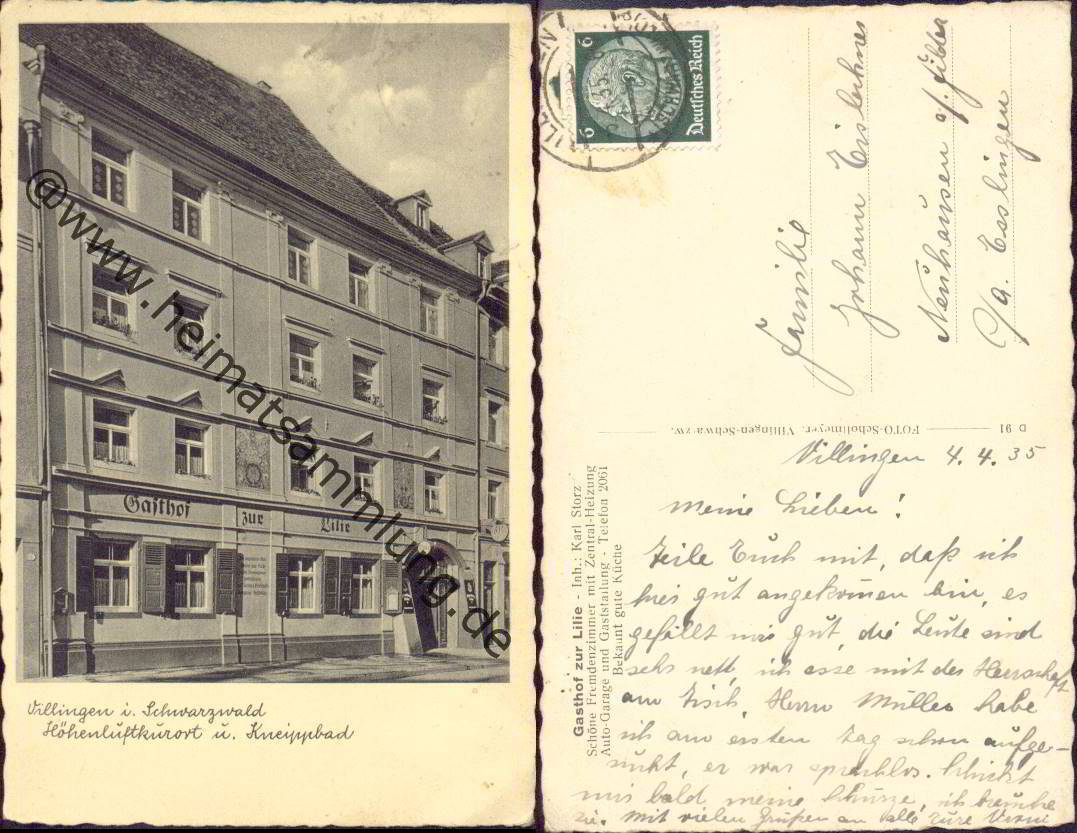 Gasthof zur Lilie
Villingen i. Schwarzwald
Höhenluftkurort u. Kneippbad
@www.heimatsammlung.de
6 6
Deutsches Reich
Familie
Johann Eislehner
Neuhausen a/. Filder
/a. Esslingen
D 91 FOTO-Schollmeyer, Villingen-Schwarzw.
Gasthof zur Lilie - Inh.: Karl Storz
Schöne Fremdenzimmer mit Zentral-Heizung
Auto-Garage und Gaststallung - Telefon 2061
Bekannt gute Küche
Villingen 4.4.35
Meine Lieben!
Teile Euch mit, daß ich
hier gut angekommen bin, es
gefällt mir gut, die Leute sind
sehr nett, ich esse mit der Herrschaft
am Tisch, Herrn Müller habe
ich am ersten Tag schon aufge-
sucht, er war sprachlos. Schickt
mir bald meine Schürze, ich brauche
sie. Mit vielen Grüßen an alle Eure